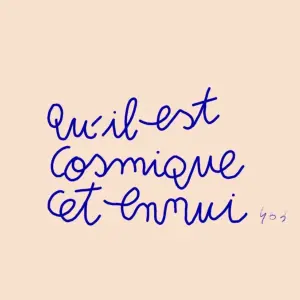 Qu'il est
Cosmique
Cet ennui